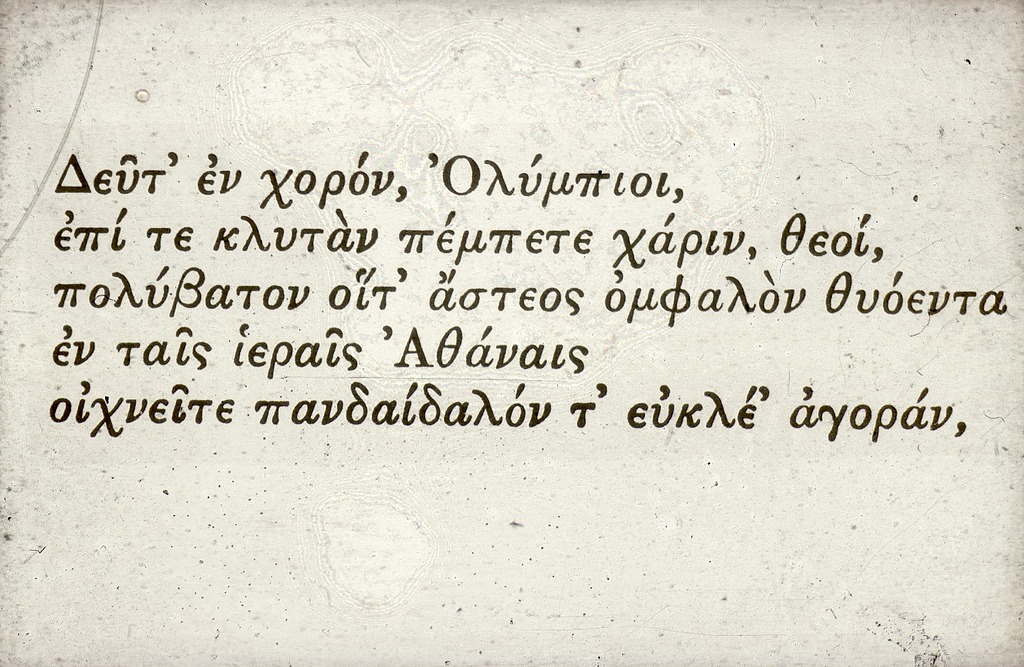 Δεῦτ’ ἐν χορόν, Ὀλύμπιοι,
ἐπί τε κλυτὰν πέμπετε χάριν, θεοί,
πολύβατον οἵτ’ ἄστεος ὀμφαλὸν θυόεντα
ἐν ταῖς ἱεραῖς Ἀθάναις
οἰχνεῖτε πανδαίδαλόν τ’ εὐκλέ’ ἀγοράν,